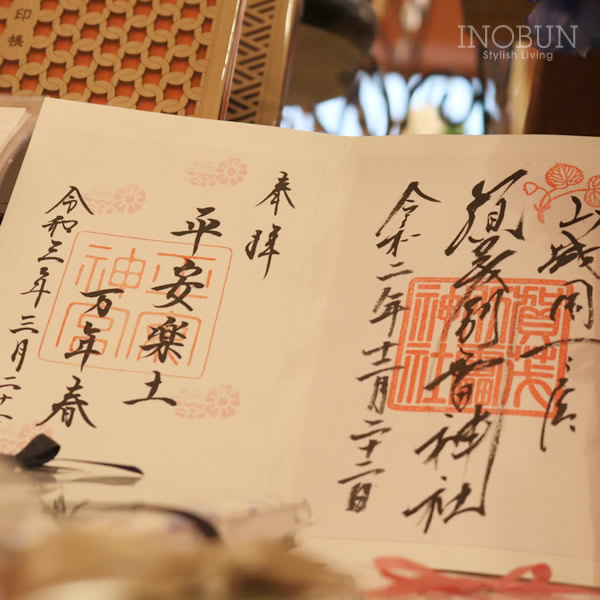 INOBUN
Stylish Living
印帳
山城国一之宮
賀茂別雷神社
賀茂別雷神社
令和二年十一月二十二日
奉拝
平安楽土
万年春
平安神宮
令和三年三月二十